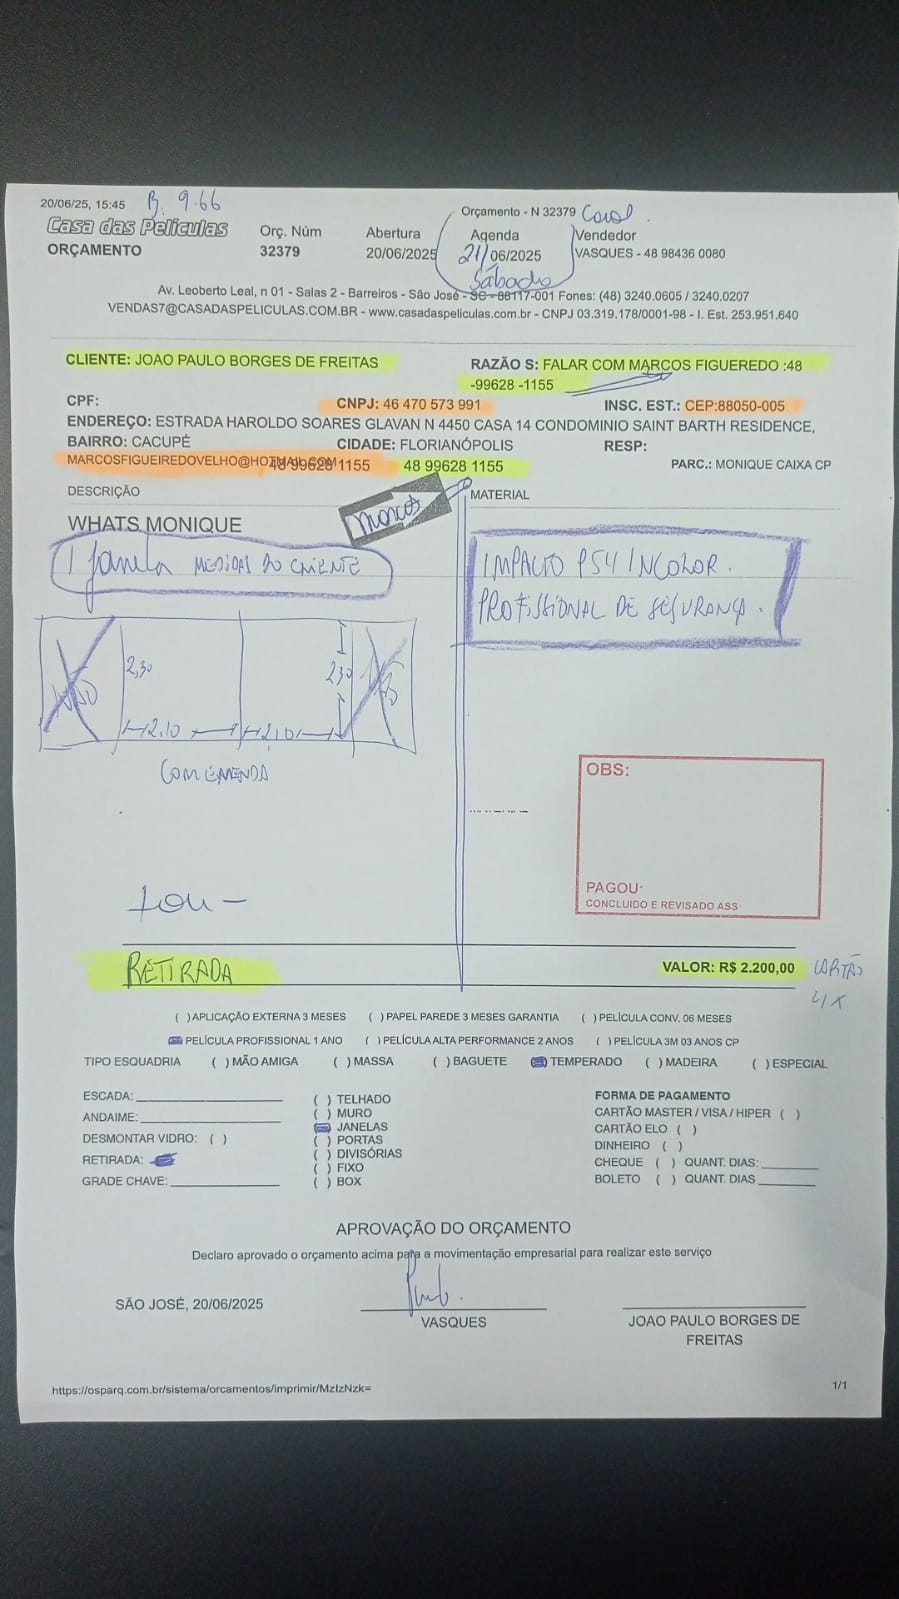 20/06/25, 15:45 B. 9.66
Orçamento - N 32379 Carol.
Casa das Películas Orç. Núm Abertura Agenda Vendedor
ORÇAMENTO 32379 20/06/2025 21/06/2025 VASQUES - 48 98436 0080
Sábado
Av. Leoberto Leal, n 01 - Salas 2 - Barreiros - São José - SC - 88117-001 Fones: (48) 3240.0605 / 3240.0207
VENDAS7@CASADASPELICULAS.COM.BR - www.casadaspeliculas.com.br - CNPJ 03.319.178/0001-98 - I. Est. 253.951.640
CLIENTE: JOAO PAULO BORGES DE FREITAS RAZÃO S: FALAR COM MARCOS FIGUEREDO :48
-99628 -1155
CPF: CNPJ: 46 470 573 991 INSC. EST.: CEP:88050-005
ENDEREÇO: ESTRADA HAROLDO SOARES GLAVAN N 4450 CASA 14 CONDOMINIO SAINT BARTH RESIDENCE,
BAIRRO: CACUPÉ CIDADE: FLORIANÓPOLIS RESP:
MARCOSFIGUEIREDOVELHO@HOTMAIL.COM 48 99628 1155 48 99628 1155 PARC.: MONIQUE CAIXA CP
DESCRIÇÃO MATERIAL
WHATS MONIQUE Marcos
1 Janela MEDIDAS DO CLIENTE
IMPACTO PS4 INCOLOR.
PROFISSIONAL DE SEGURANÇA.
NÃO 2,30 2,30
2,10 2,10
COM EMENDA
OBS:
PAGOU:
CONCLUIDO E REVISADO ASS:
RETIRADA VALOR: R$ 2.200,00 CARTÃO
4X
( )APLICAÇÃO EXTERNA 3 MESES ( )PAPEL PAREDE 3 MESES GARANTIA ( )PELÍCULA CONV. 06 MESES
PELÍCULA PROFISSIONAL 1 ANO ( )PELÍCULA ALTA PERFORMANCE 2 ANOS ( )PELÍCULA 3M 03 ANOS CP
TIPO ESQUADRIA ( )MÃO AMIGA ( )MASSA ( )BAGUETE TEMPERADO ( )MADEIRA ( )ESPECIAL
ESCADA: ( ) TELHADO FORMA DE PAGAMENTO
( ) MURO CARTÃO MASTER / VISA / HIPER ( )
ANDAIME: JANELAS CARTÃO ELO ( )
DESMONTAR VIDRO: ( ) ( ) PORTAS DINHEIRO ( )
RETIRADA: ( ) DIVISÓRIAS CHEQUE ( ) QUANT. DIAS:
( ) FIXO
GRADE CHAVE: ( ) BOX BOLETO ( ) QUANT. DIAS
APROVAÇÃO DO ORÇAMENTO
Declaro aprovado o orçamento acima para a movimentação empresarial para realizar este serviço
SÃO JOSÉ, 20/06/2025
VASQUES JOAO PAULO BORGES DE
FREITAS
https://osparq.com.br/sistema/orcamentos/imprimir/MzIzNzk= 1/1